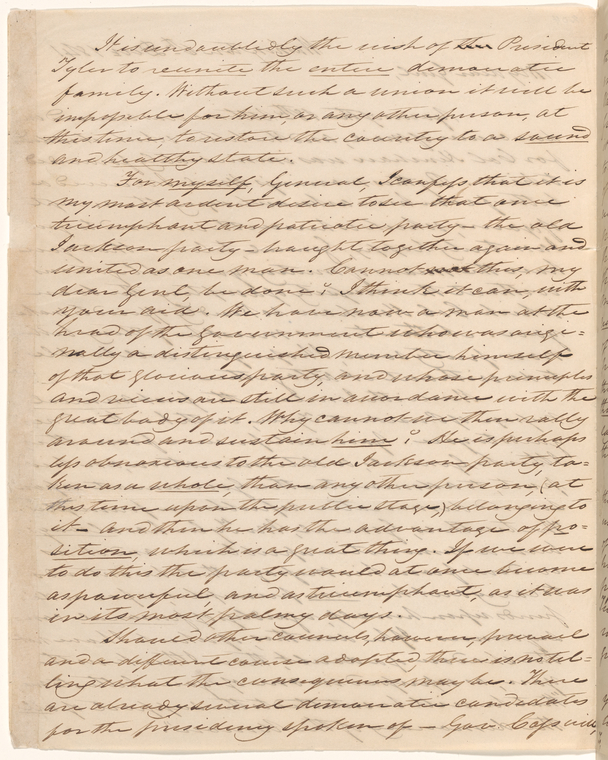 It is undoubtedly the wish of the President
Tyler to reunite the entire democratic
family. Without such a union it will be
impossible for him, or any other person, at
this time, to restore the country to a sound
and healthy state.
For myself, General, I confess, that it is
my most ardent desire to see that once
triumphant and patriotic party - the old
Jackson party - brought together again and
united as one man. Cannot this, my
dear Genl, be done? I think it can, with
your aid. We have now a man at the
head of the Government who was origi-
nally a distinguished member himself
of that glorious party, and whose principles
and views are still in accordance with the
great body of it. Why cannot we then rally
around and sustain him? He is perhaps
less obnoxious to the old Jackson party, ta-
ken as a whole, than any other person, (at
this time upon the public stage,) belonging to
it - and then he has the advantage of po-
sition, which is a great thing. If we were
to do this the party would at once become
as powerful, and as triumphant, as it was
in its most palmy days.
Should other councils, however, prevail
and a different course adopted, there is no tel-
ling what the consequences may be. There
are already several democratic candidates
for the presidency spoken of - Gov. Cass will,